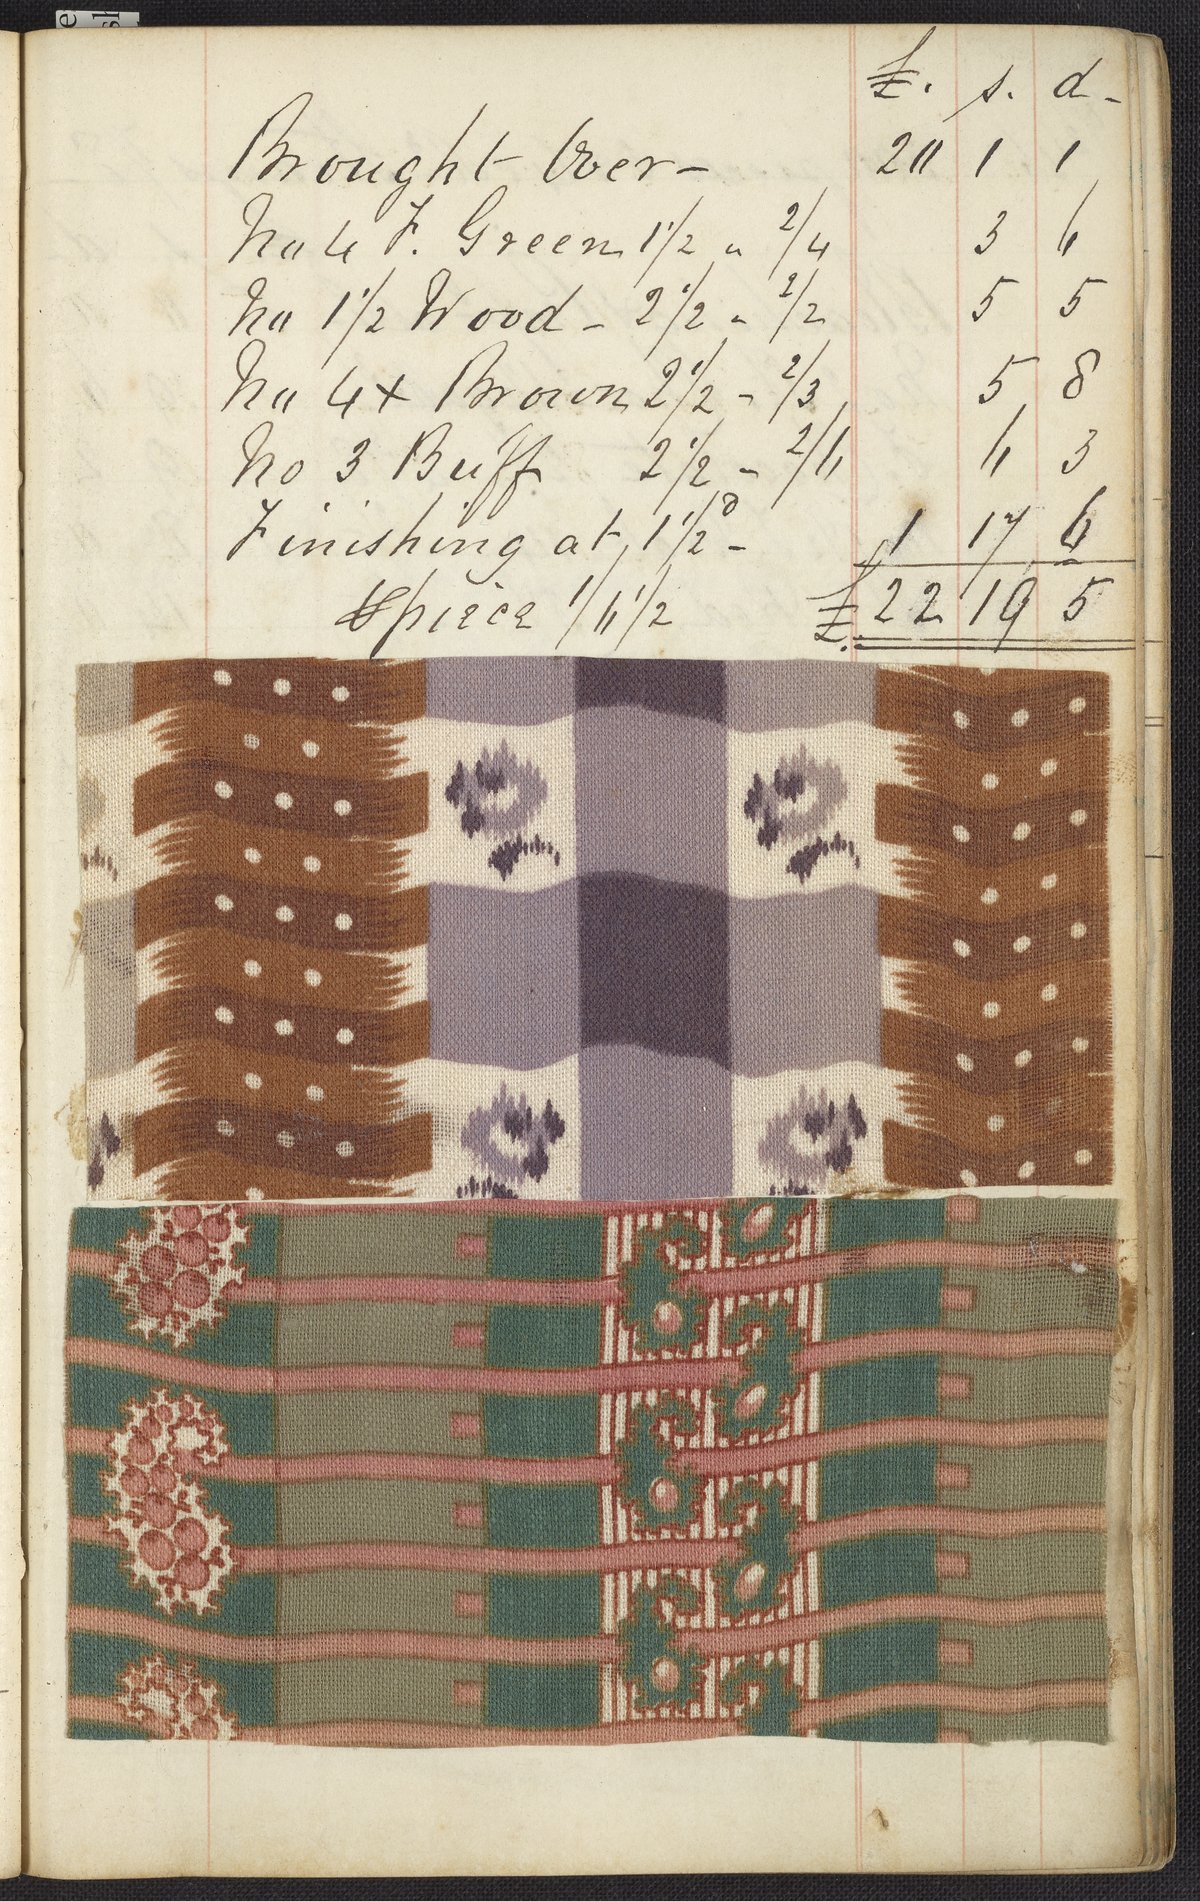 £. s. d -
Brought Over - 20 1 1
No 4 F. Green 1 1/2 " 2/4 3 6
No 1 1/2 Wood - 2 1/2 " 2/2 5 5
No 4x Brown 2 1/2 - 2/3 5 8
No 3 Buff 2 1/2 - 2/6 6 3
Finishing at 1 1/2 d - 1 17 6
piece 1/6 1/2 £ 22 19 5